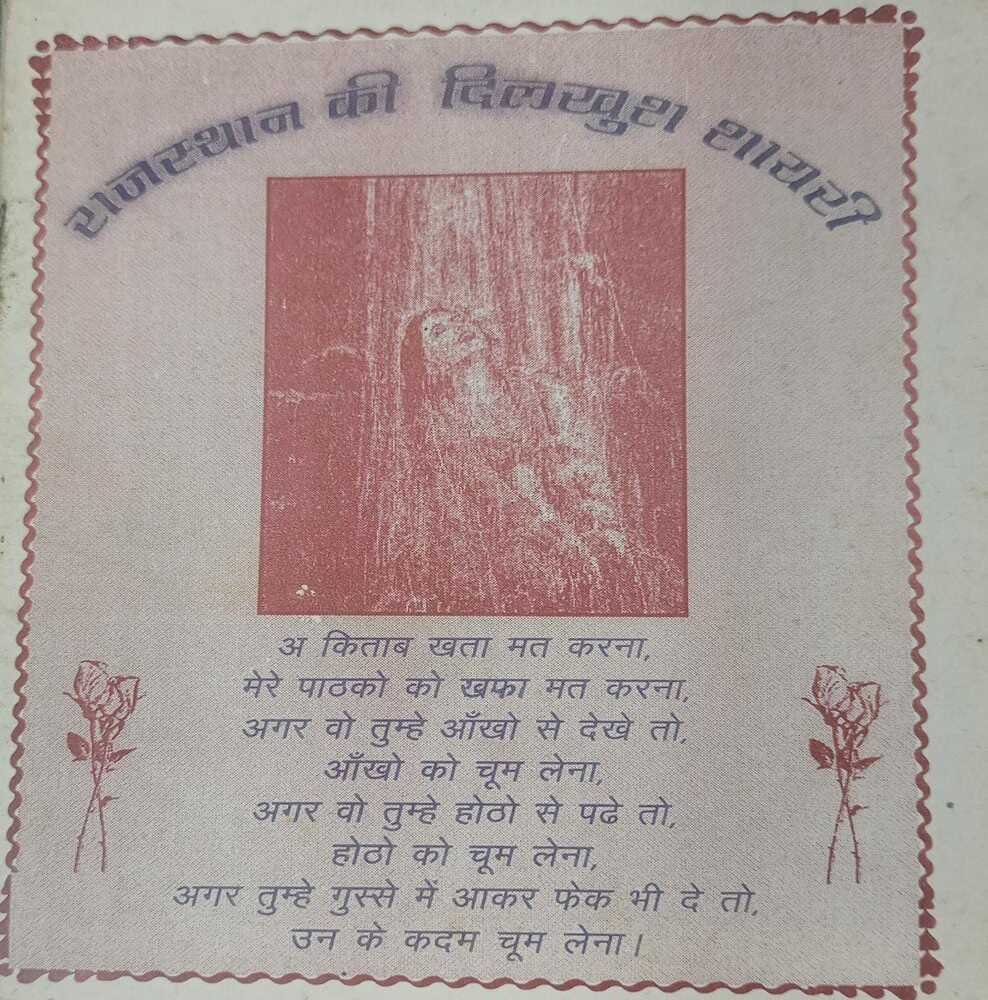 राजस्थान की दिलखुश शायरी
अ किताब खता मत करना,
मेरे पाठको को खफा मत करना,
अगर वो तुम्हे आँखो से देखे तो,
आँखो को चूम लेना,
अगर वो तुम्हे होठो से पढे तो,
होठो को चूम लेना,
अगर तुम्हे गुस्से में आकर फेक भी दे तो,
उन के कदम चूम लेना।